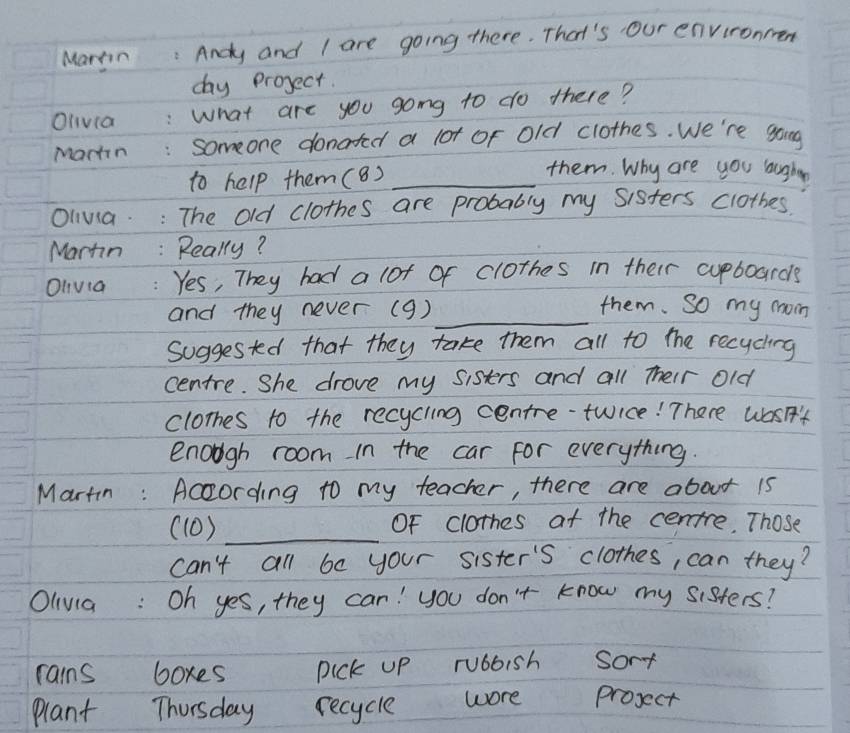 Martin : Andy and I are going there. That's our environmen
day Project.
Olivia : What are you going to do there?
Martin : Someone donated a lot of old clothes. We're going
to help them (8) __________ them. Why are you laughing
Olivia : The old clothes are probably my sisters clothes.
Martin : Really?
Olivia : Yes, They had a lot of clothes in their cupboards
and they never (9) __________ them. So my mom
Suggested that they take them all to the recycling
centre. She drove my sisters and all their old
clothes to the recycling centre - twice! There wasn't
enough room in the car for everything.
Martin : According to my teacher, there are about 15
(10) __________ of clothes at the centre. Those
can't all be your sister's clothes, can they?
Olivia : Oh yes, they can! You don't know my sisters!
rains boxes pick up rubbish Sort
Plant Thursday recycle wore Project